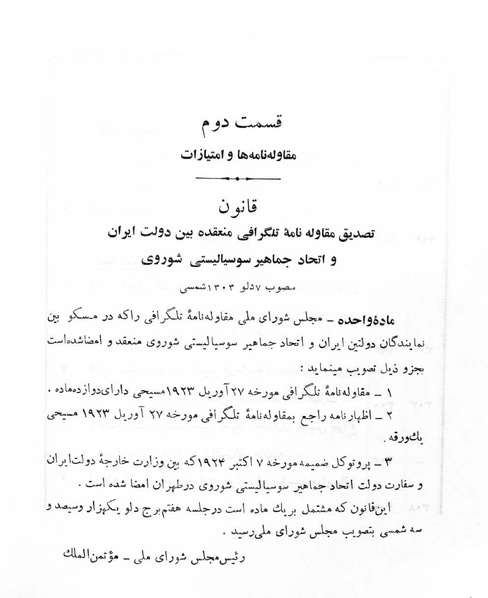 قسمت دوم
مقاوله‌نامه‌ها و امتیازات
قانون
تصدیق مقاوله نامهٔ تلگرافی منعقده بین دولت ایران
و اتحاد جماهیر سوسیالیستی شوروی
مصوب ۷ دلو ۱۳۰۳ شمسی
مادهٔ واحده - مجلس شورای ملی مقاوله‌نامهٔ تلگرافی راکه در مسکو بین
نمایندگان دولتین ایران و اتحاد جماهیر سوسیالیستی شوروی منعقد و امضا شده‌است
بجزو ذیل تصویب مینماید :
۱ - مقاوله‌نامهٔ تلگرافی مورخه ۲۷ آوریل ۱۹۲۳ مسیحی دارای دوازده‌ماده .
۲ - اظهارنامه راجع بمقاوله‌نامهٔ تلگرافی مورخه ۲۷ آوریل ۱۹۲۳ مسیحی
یك‌ورقه .
۳ - پروتوکل ضمیمه مورخه ۷ اکتبر ۱۹۲۴ که بین وزارت خارجهٔ دولت ایران
و سفارت دولت اتحاد جماهیر سوسیالیستی شوروی درطهران امضا شده است .
این‌قانون که مشتمل بریك ماده است درجلسه هفتم برج دلو یکهزار وسیصد و
سه شمسی بتصویب مجلس شورای ملی رسید .
رئیس مجلس شورای ملی - مؤتمن‌الملك